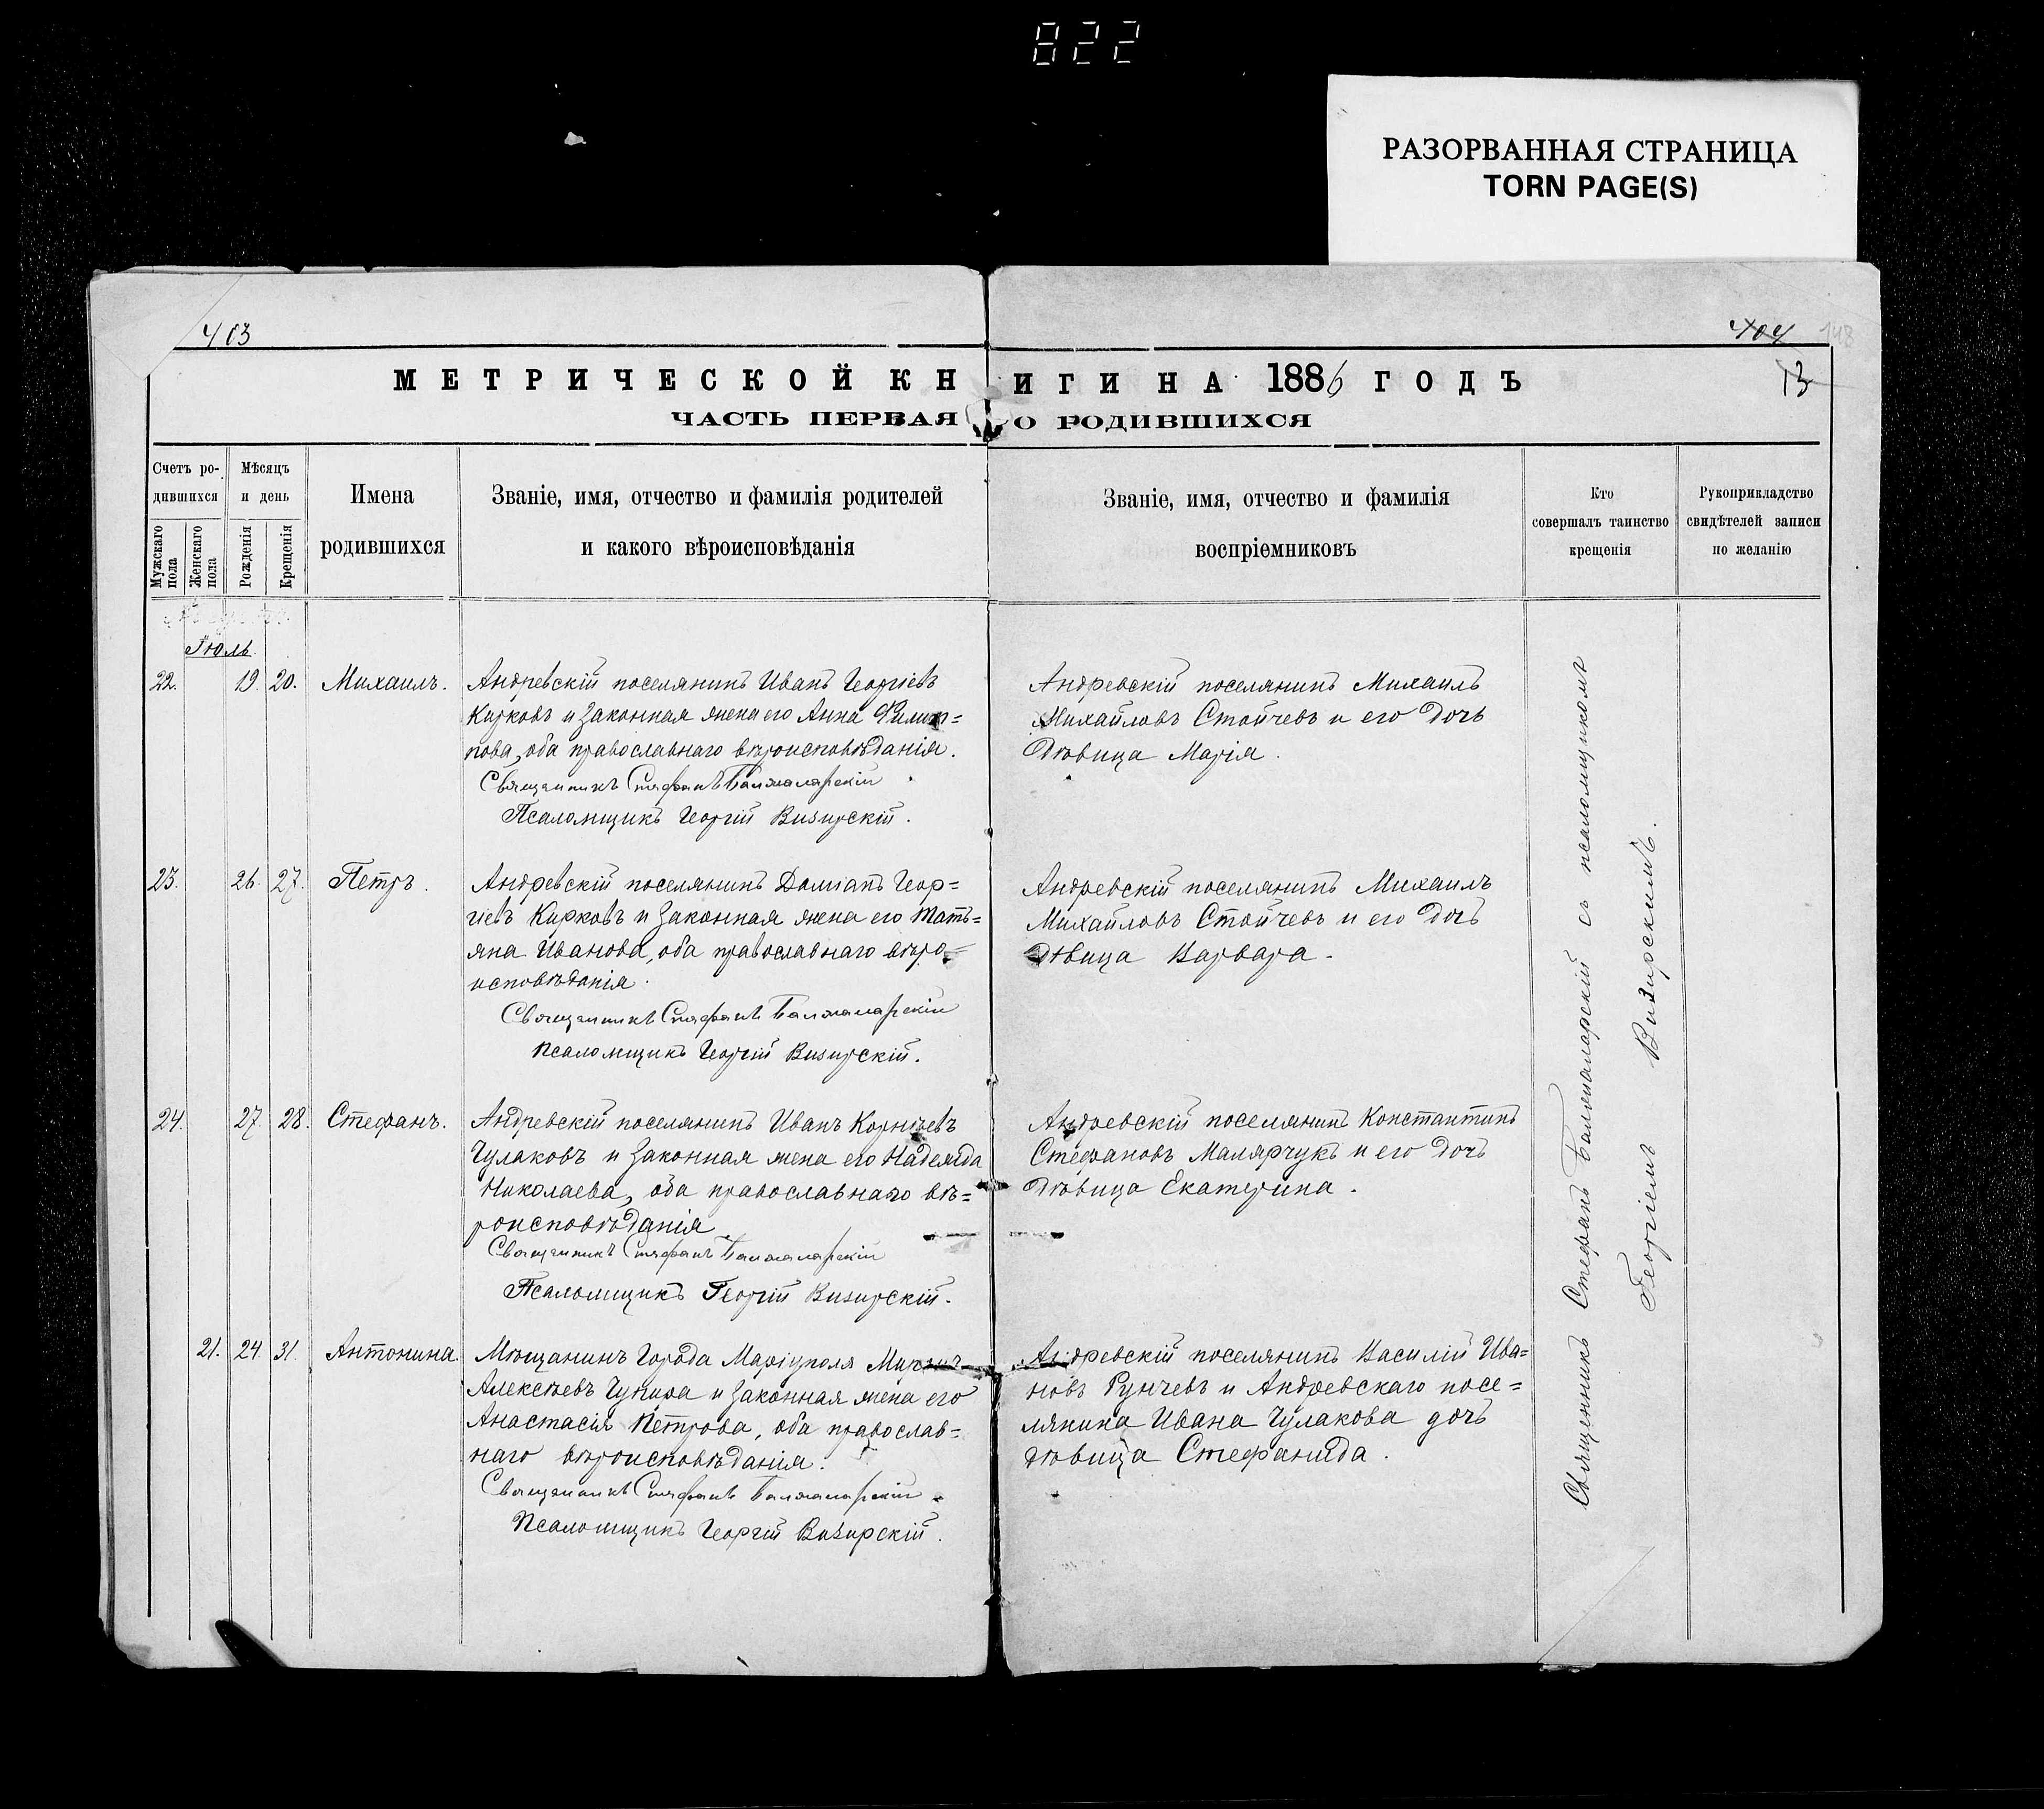 822
РАЗОРВАННАЯ СТРАНИЦА
TORN PAGE(S)
403
404
148
МЕТРИЧЕСКОЙ КНИГИ НА 1886 ГОДЪ
13
ЧАСТЬ ПЕРВАЯ О РОДИВШИХСЯ
Счетъ родившихся
Мужскаго пола
Женскаго пола
Мѣсяцъ и день
Рожденія
Крещенія
Имена
родившихся
Званіе, имя, отчество и фамилія родителей
и какого вѣроисповѣданія
Званіе, имя, отчество и фамилія
воспріемниковъ
Кто
совершалъ таинство
крещенія
Рукоприкладство
свидѣтелей записи
по желанію
Іюль
22. 19. 20. Михаилъ.
Андревскій поселянинъ Иванъ Георгіевъ
Кирковъ и законная жена его Анна Филип=
пова, оба православнаго вѣроисповѣданія.
Священникъ Стефанъ Балжаларскій
Псаломщикъ Георгій Визирскій.
Андревскій поселянинъ Михаилъ
Михайловъ Стойчевъ и его дочь
дѣвица Марія.
23. 26. 27. Петръ.
Андревскій поселянинъ Даміанъ Геор=
гіевъ Кирковъ и законная жена его Тать=
яна Иванова, оба православнаго вѣро=
исповѣданія.
Священникъ Стефанъ Балжаларскій
Псаломщикъ Георгій Визирскій.
Андревскій поселянинъ Михаилъ
Михайловъ Стойчевъ и его дочь
дѣвица Варвара.
24. 27. 28. Стефанъ.
Андревскій поселянинъ Иванъ Корніевъ
Чулаковъ и законная жена его Надежда
Николаева, оба православнаго вѣ=
роисповѣданія
Священникъ Стефанъ Балжаларскій
Псаломщикъ Георгій Визирскій.
Андревскій поселянинъ Константинъ
Стефановъ Малярчукъ и его дочь
дѣвица Екатерина.
21. 24. 31. Антонина.
Мѣщанинъ города Маріуполя
Алексѣевъ и законная жена его
Анастасія Петрова, оба православ=
наго вѣроисповѣданія.
Священникъ Стефанъ Балжаларскій
Псаломщикъ Георгій Визирскій.
Андревскій поселянинъ Василій Ива=
новъ Рунчевъ и Андревскаго посе=
лянина Ивана Чулакова дочь
дѣвица Стефанида.
Священникъ Стефанъ Балжаларскій съ псаломщикомъ
Георгіемъ Визирскимъ.